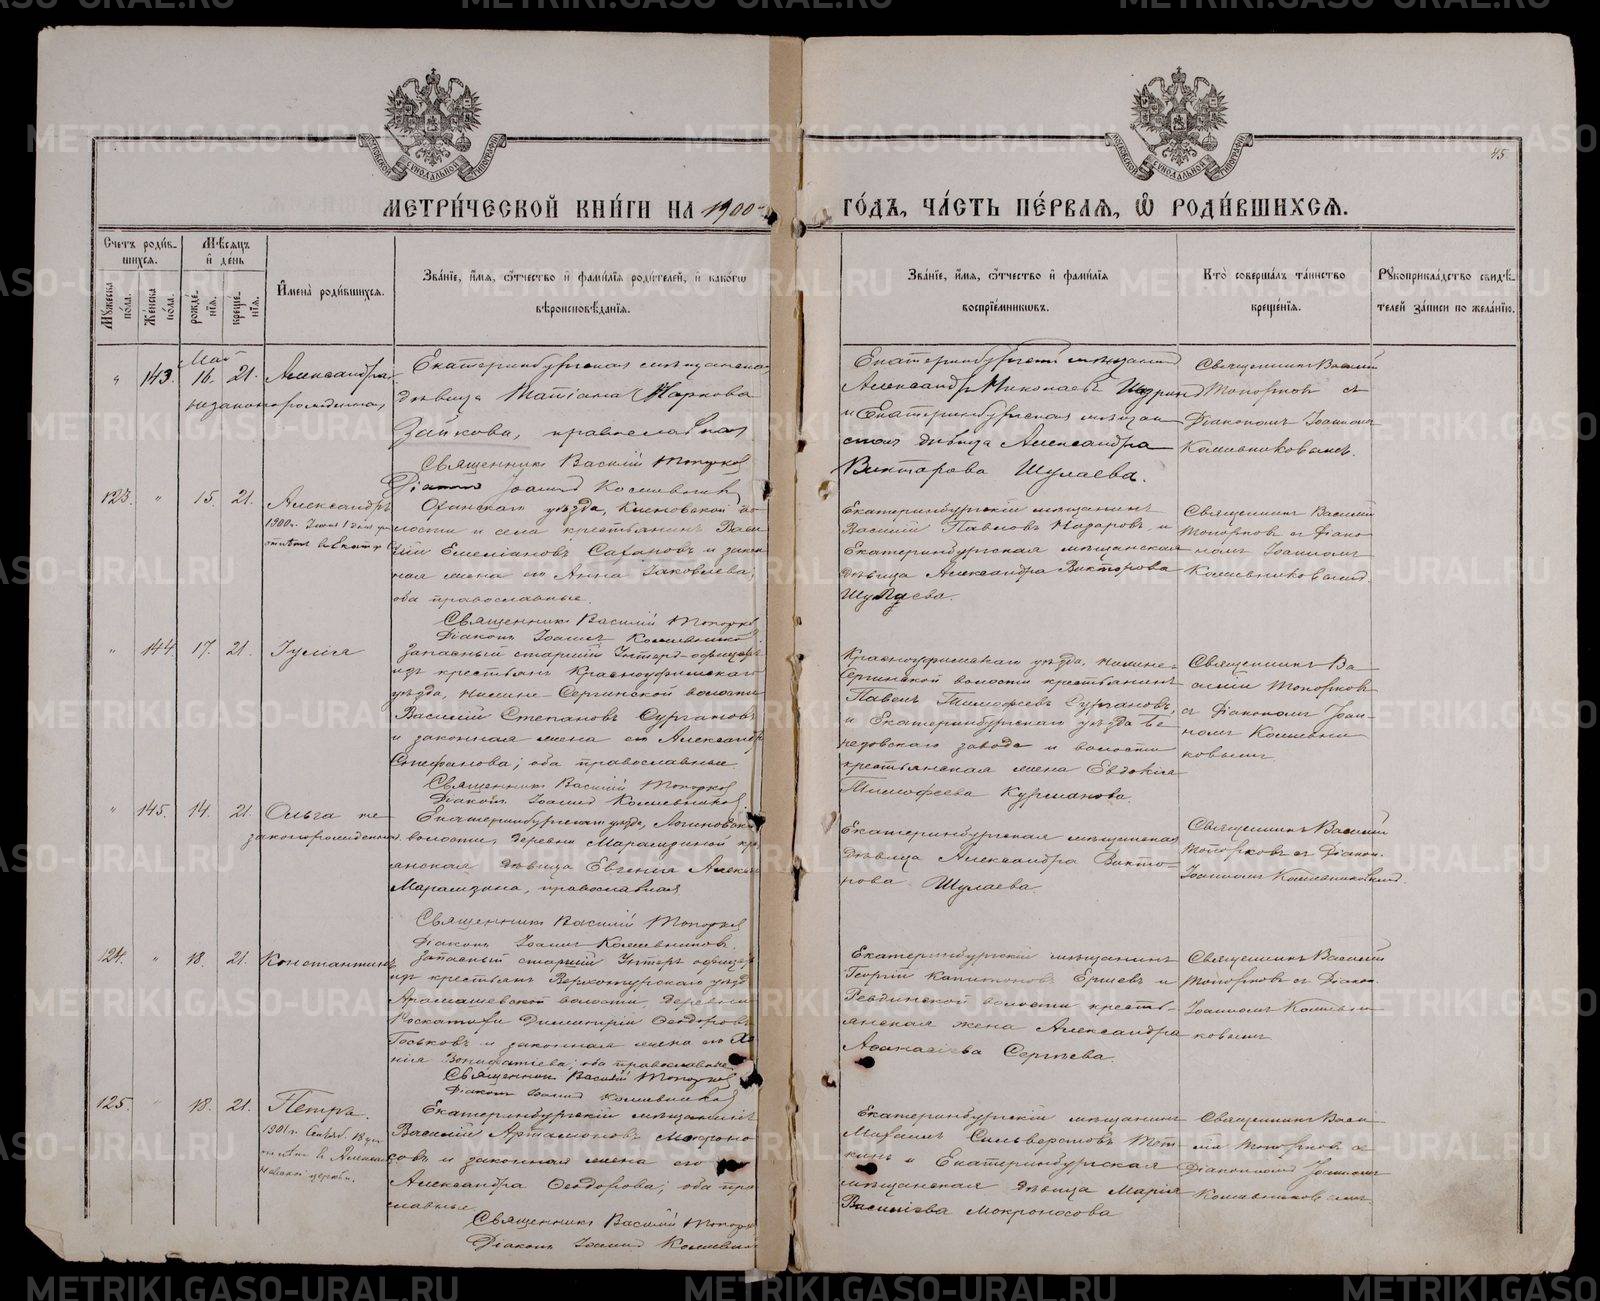 45
МЕТРИ́ЧЕСКОЙ КНИ́ГИ НА 1900
ГО́ДЪ, ЧА́СТЬ ПЕ́РВАЯ, Ѡ РОДИ́ВШИХСЯ.
Счетъ роди́вшихся.
Мѣ́сяцъ и́ день
И҆мена̀ роди́вшихся.
Зва́нїе, и҆́мя, ѻ҆́тчество и҆ фамилїя роди́телей, и҆ какогѡ вѣроисповѣ́данїя.
Зва́нїе, и҆́мя, ѻ҆́тчество и҆ фамилїя воспрїе́мниковъ.
Кто̀ соверша́лъ та́инство креще́нїя.
Рꙋкоприкла́дство свидѣ́телей за́писи по жела́нїю.
Мꙋжеска по́ла.
Же́нска по́ла.
рожде́нїя.
креще́нїя.
Май
" 143. 16. 21. Александра,
незаконнорожденная,
Екатеринбургская мѣщанская
дѣвица Татіана Маркова
Зайкова, православная
Священникъ Василій Топорков
Діаконъ Іоаннъ Кожевников
Екатеринбургскій мѣщанинъ
Александръ Николаевъ
и Екатеринбургская мѣщан
ская дѣвица Александра
Викторова Шулаева.
Священникъ Василій
Топорковъ съ
Діакономъ Іоанномъ
Кожевниковымъ.
123. " 15. 21. Александръ
уѣзда,
лости и села крестьянинъ Васи
лій Емеліановъ Сафоновъ и закон
ная жена его Анна Іаковлева,
оба православные.
Священникъ Василій Топорков
Діаконъ Іоаннъ Кожевников
Екатеринбургскій мѣщанинъ
Василій Павловъ Назаровъ и
Екатеринбургская мѣщанская
дѣвица Александра Викторова
Шулаева.
Священникъ Василій
Топорковъ съ Діако
номъ Іоанномъ
Кожевниковымъ.
" 144. 17. 21. Іулія
Запасный старшій Унтеръ-офицеръ
изъ крестьянъ Красноуфимскаго
уѣзда, Нижне-Сергинской волости
Василій Степановъ Сургановъ
и законная жена его Александра
Стефанова; оба православные.
Священникъ Василій Топорков
Діаконъ Іоаннъ Кожевников
Красноуфимскаго уѣзда, Нижне-
Сергинской волости крестьянинъ
Павелъ Тимофеевъ Сургановъ,
и Екатеринбургскаго уѣзда
завода и волости
крестьянская жена Евдокія
Тимофеева Курманова.
Священникъ Ва
силій Топорковъ
съ Діакономъ Іоан
номъ Кожевни
ковымъ
" 145. 14. 21. Ольга не
законнорожденная.
Екатеринбургскаго уѣзда,
волости, деревни Марамзиной кре
дѣвица Евгенія
Марамзина, православная
Священникъ Василій Топорков
Діаконъ Іоаннъ Кожевников.
Екатеринбургская мѣщанская
дѣвица Александра Викто
рова Шулаева
Священникъ Василій
Топорковъ съ Діакон.
Іоанномъ Кожевниковымъ.
124. " 18. 21. Константинъ
Запасный старшій Унтеръ офицеръ
изъ крестьянъ Верхотурскаго уѣзда
Арамашевской волости, деревни
Димитрій Ѳеодоровъ
и законная жена его
Вонифатіева; оба православные
Священникъ Василій Топорков
Діаконъ Іоаннъ Кожевников
Екатеринбургскій мѣщанинъ
Георгій Капитоновъ Ершевъ и
Ревдинской волости кресть
янская жена Александра
Аѳанасіева Сергѣева.
Священникъ Василій
Топорковъ съ Діакон.
Іоанномъ Кожевни
ковымъ
125. " 18. 21. Петръ.
1901 г. Сентяб. 18
Екатеринбургскій мѣщанинъ
Василій Артамоновъ Мокроно
совъ и законная жена его
Александра Ѳеодорова; оба пра
славные.
Священникъ Василій Топорков
Діаконъ Іоаннъ Кожевник
Екатеринбургскій мѣщанинъ
Михаилъ Сильверстовъ
и Екатеринбургская
мѣщанская дѣвица Марія
Василіева Мокроносова
Священникъ Васи
лій Топорковъ съ
Діакономъ Іоанномъ
Кожевниковымъ
METRIKI.GASO-URAL.RU